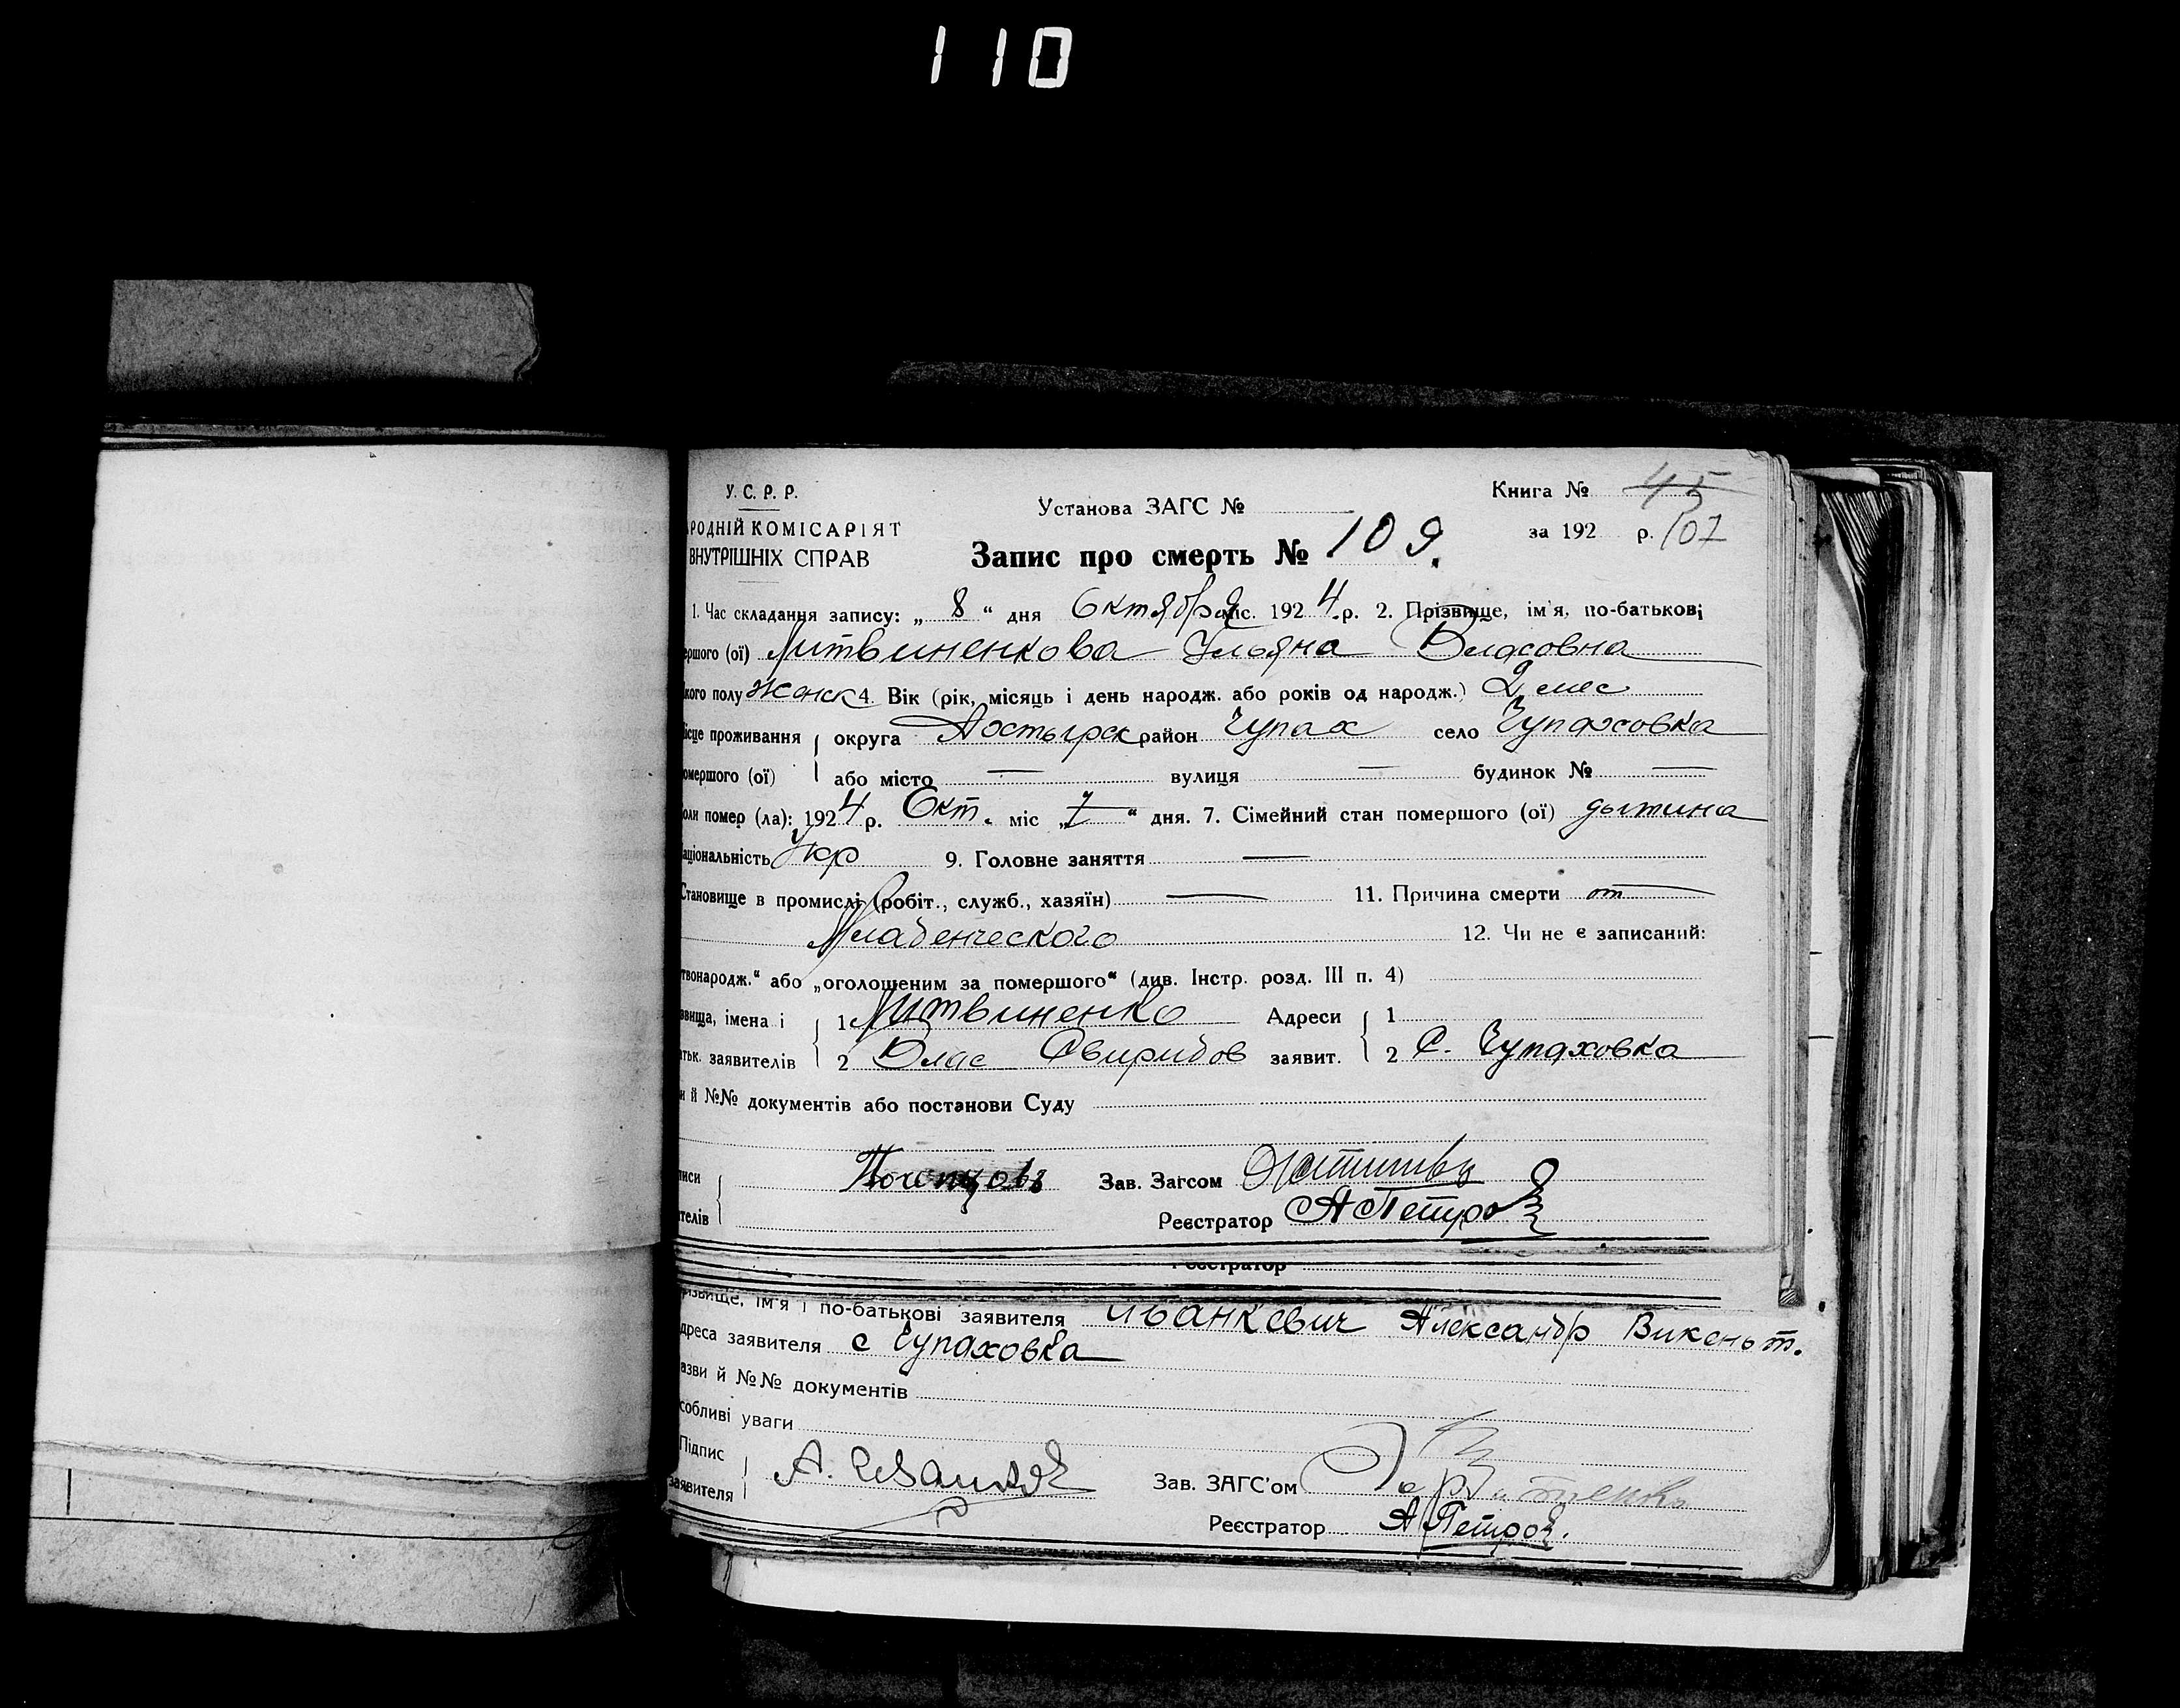 110
У. С. Р. Р.
РОДНІЙ КОМІСАРІЯТ
ВНУТРІШНІХ СПРАВ
Установа ЗАГС №
Книга № 45
за 192 р. 107
Запис про смерть № 109.
1. Час складання запису: „ 8 “ дня Октября міс. 1924 р. 2. Прізвище, ім'я, по-батькові
ершого (ої) Литвиненкова Ульяна Власовна
кого полу женск 4. Вік (рік, місяць і день народж. або років од народж.) 2 мес
ісце проживання округа Ахтырск район Чупах село Чупаховка
омершого (ої) або місто — вулиця — будинок № —
оли помер (ла): 1924 р. Окт. міс „ 7 “ дня. 7. Сімейний стан помершого (ої) дытина
аціональність Укр 9. Головне заняття —
Становище в промислі (робіт., служб., хазяїн) — 11. Причина смерти от
Младенческого 12. Чи не є записаний:
твонародж.“ або „оголошеним за помершого“ (див. Інстр. розд. III п. 4)
звища, імена і 1 Литвиненко Адреси 1
атьк. заявителів 2 Влас Свиридов заявит. 2 С. Чупаховка
и й №№ документів або постанови Суду
писи Зав. Загсом
телів Реєстратор АПетров
Реєстратор
ізвище, ім'я і по-батькові заявителя Иванкевич Александр Викеньт.
дреса заявителя с Чупаховка
азви й №№ документів
собливі уваги
Підпис
заявителя А. Зав. ЗАГС'ом
Реєстратор АПетров.